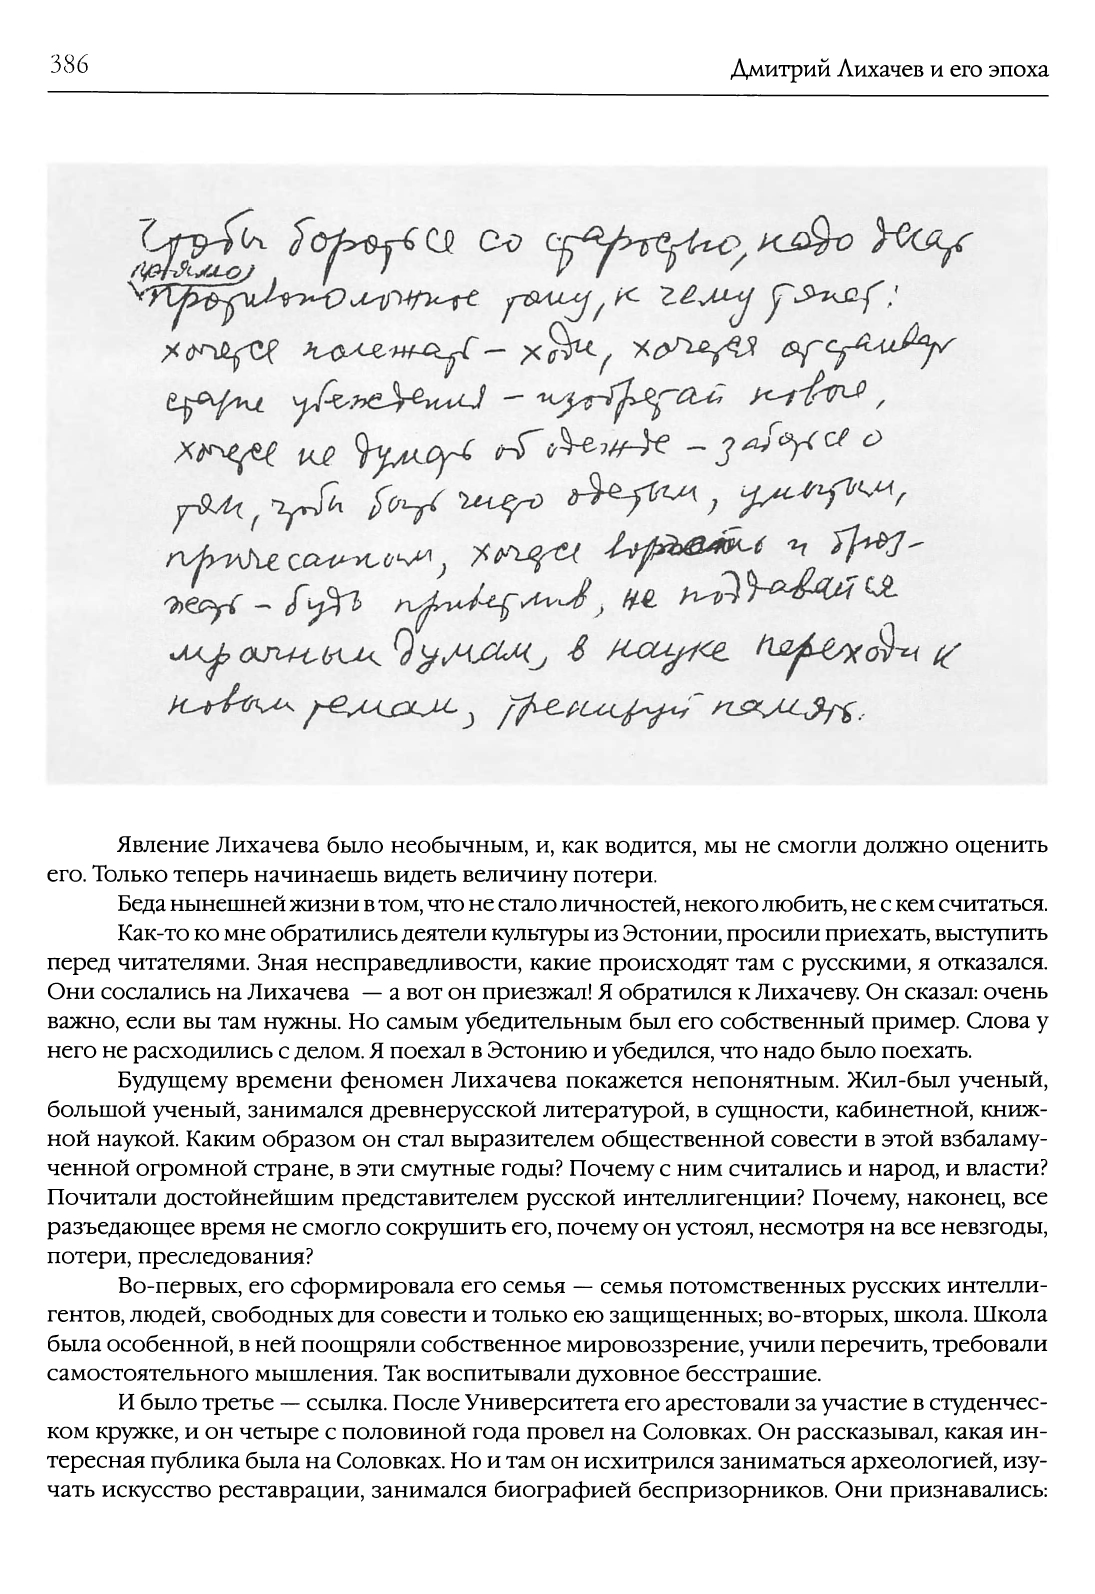 386
Дмитрий Лихачев и его эпоха
Чтобы бороться со старостью, надо делать
прямо
противоположное тому, к чему тянет:
хочется полежать – ходи, хочется отстаивать
старые убеждения – изобретай новые,
хочется не думать об одежде – заботься о
том, чтобы быть чисто одетым, умытым,
причесанным, хочется ворчать и брюз-
жать – будь приветлив, не поддавайся
мрачным думам, в науке переходи к
новым темам, тренируй память.
Явление Лихачева было необычным, и, как водится, мы не смогли должно оценить
его. Только теперь начинаешь видеть величину потери.
Беда нынешней жизни в том, что не стало личностей, некого любить, не с кем считаться.
Как-то ко мне обратились деятели культуры из Эстонии, просили приехать, выступить
перед читателями. Зная несправедливости, какие происходят там с русскими, я отказался.
Они сослались на Лихачева — а вот он приезжал! Я обратился к Лихачеву. Он сказал: очень
важно, если вы там нужны. Но самым убедительным был его собственный пример. Слова у
него не расходились с делом. Я поехал в Эстонию и убедился, что надо было поехать.
Будущему времени феномен Лихачева покажется непонятным. Жил-был ученый,
большой ученый, занимался древнерусской литературой, в сущности, кабинетной, книж-
ной наукой. Каким образом он стал выразителем общественной совести в этой взбаламу-
ченной огромной стране, в эти смутные годы? Почему с ним считались и народ, и власти?
Почитали достойнейшим представителем русской интеллигенции? Почему, наконец, все
разъедающее время не смогло сокрушить его, почему он устоял, несмотря на все невзгоды,
потери, преследования?
Во-первых, его сформировала его семья — семья потомственных русских интелли-
гентов, людей, свободных для совести и только ею защищенных; во-вторых, школа. Школа
была особенной, в ней поощряли собственное мировоззрение, учили перечить, требовали
самостоятельного мышления. Так воспитывали духовное бесстрашие.
И было третье — ссылка. После Университета его арестовали за участие в студенчес-
ком кружке, и он четыре с половиной года провел на Соловках. Он рассказывал, какая ин-
тересная публика была на Соловках. Но и там он исхитрился заниматься археологией, изу-
чать искусство реставрации, занимался биографией беспризорников. Они признавались: